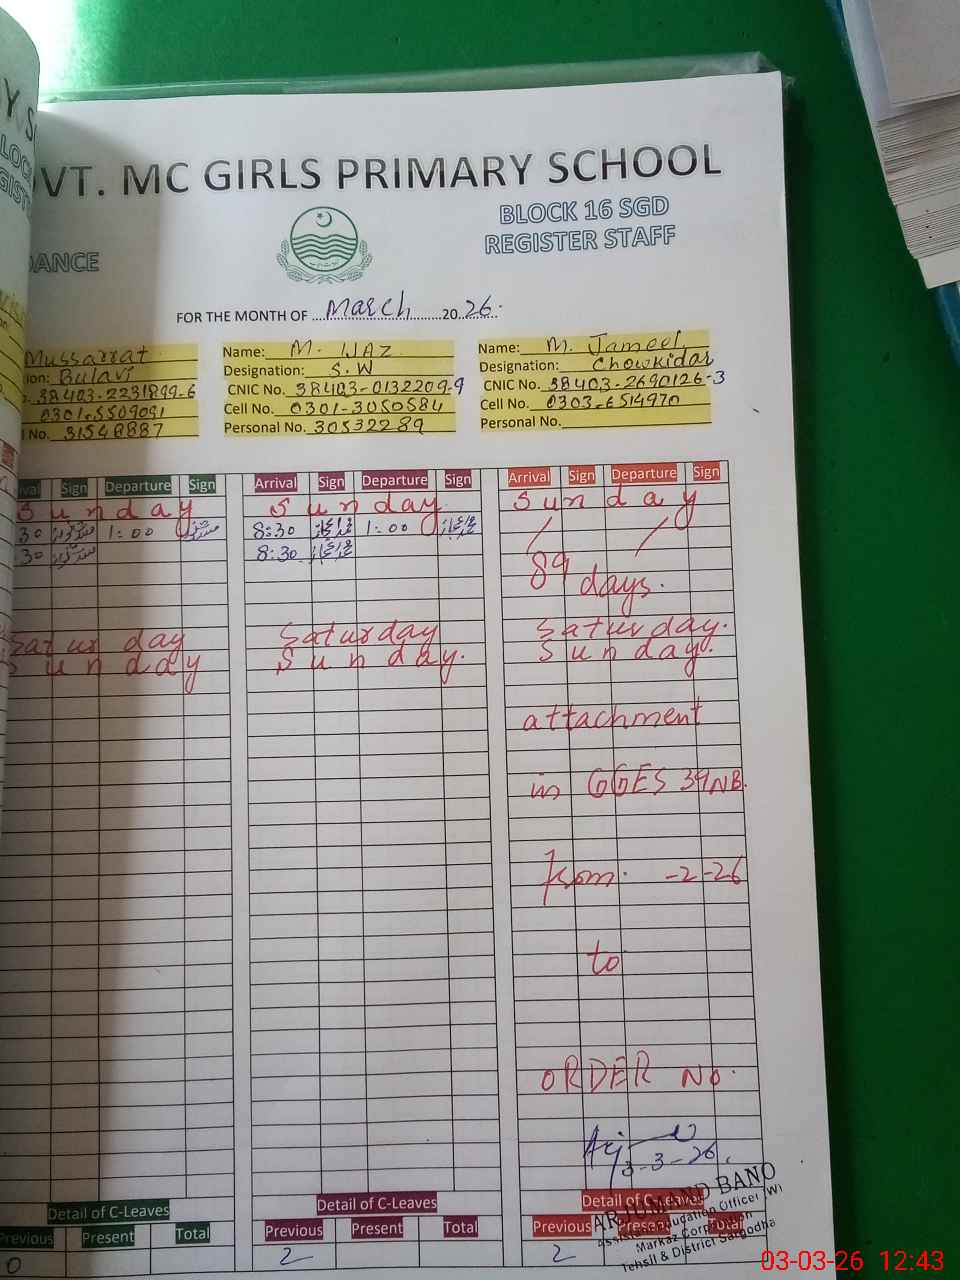 VT. MC GIRLS PRIMARY SCHOOL
BLOCK 16 SGD
REGISTER STAFF
DANCE
FOR THE MONTH OF March 20 26.
Mussarrat
ion: Bulavi
38403-2231899-6
0301-5509091
l No. 31548887
Name: M. IJAZ
Designation: S.W
CNIC No. 38403-0132209-9
Cell No. 0301-3050584
Personal No. 30532289
Name: M. Jameel
Designation: Chowkidar
CNIC No. 38403-2690126-3
Cell No. 0303-6514970
Personal No.
val Sign Departure Sign
Sunday
30 1:00
30
Saturday
Sunday
Arrival Sign Departure Sign
Sunday
8:30 1:00
8:30
Saturday
Sunday.
Arrival Sign Departure Sign
Sunday
89 days.
Saturday.
Sunday.
attachment
in GGES 39NB.
from. -2-26
to
ORDER No.
3-3-26.
Detail of C-Leaves
Previous Present Total
0
Detail of C-Leaves
Previous Present Total
2
Detail of C-Leaves
Previous Present Total
2
ARJUMAND BANO
Assistant Education Officer (W)
Markaz Corporation
Tehsil & District Sargodha
03-03-26 12:43